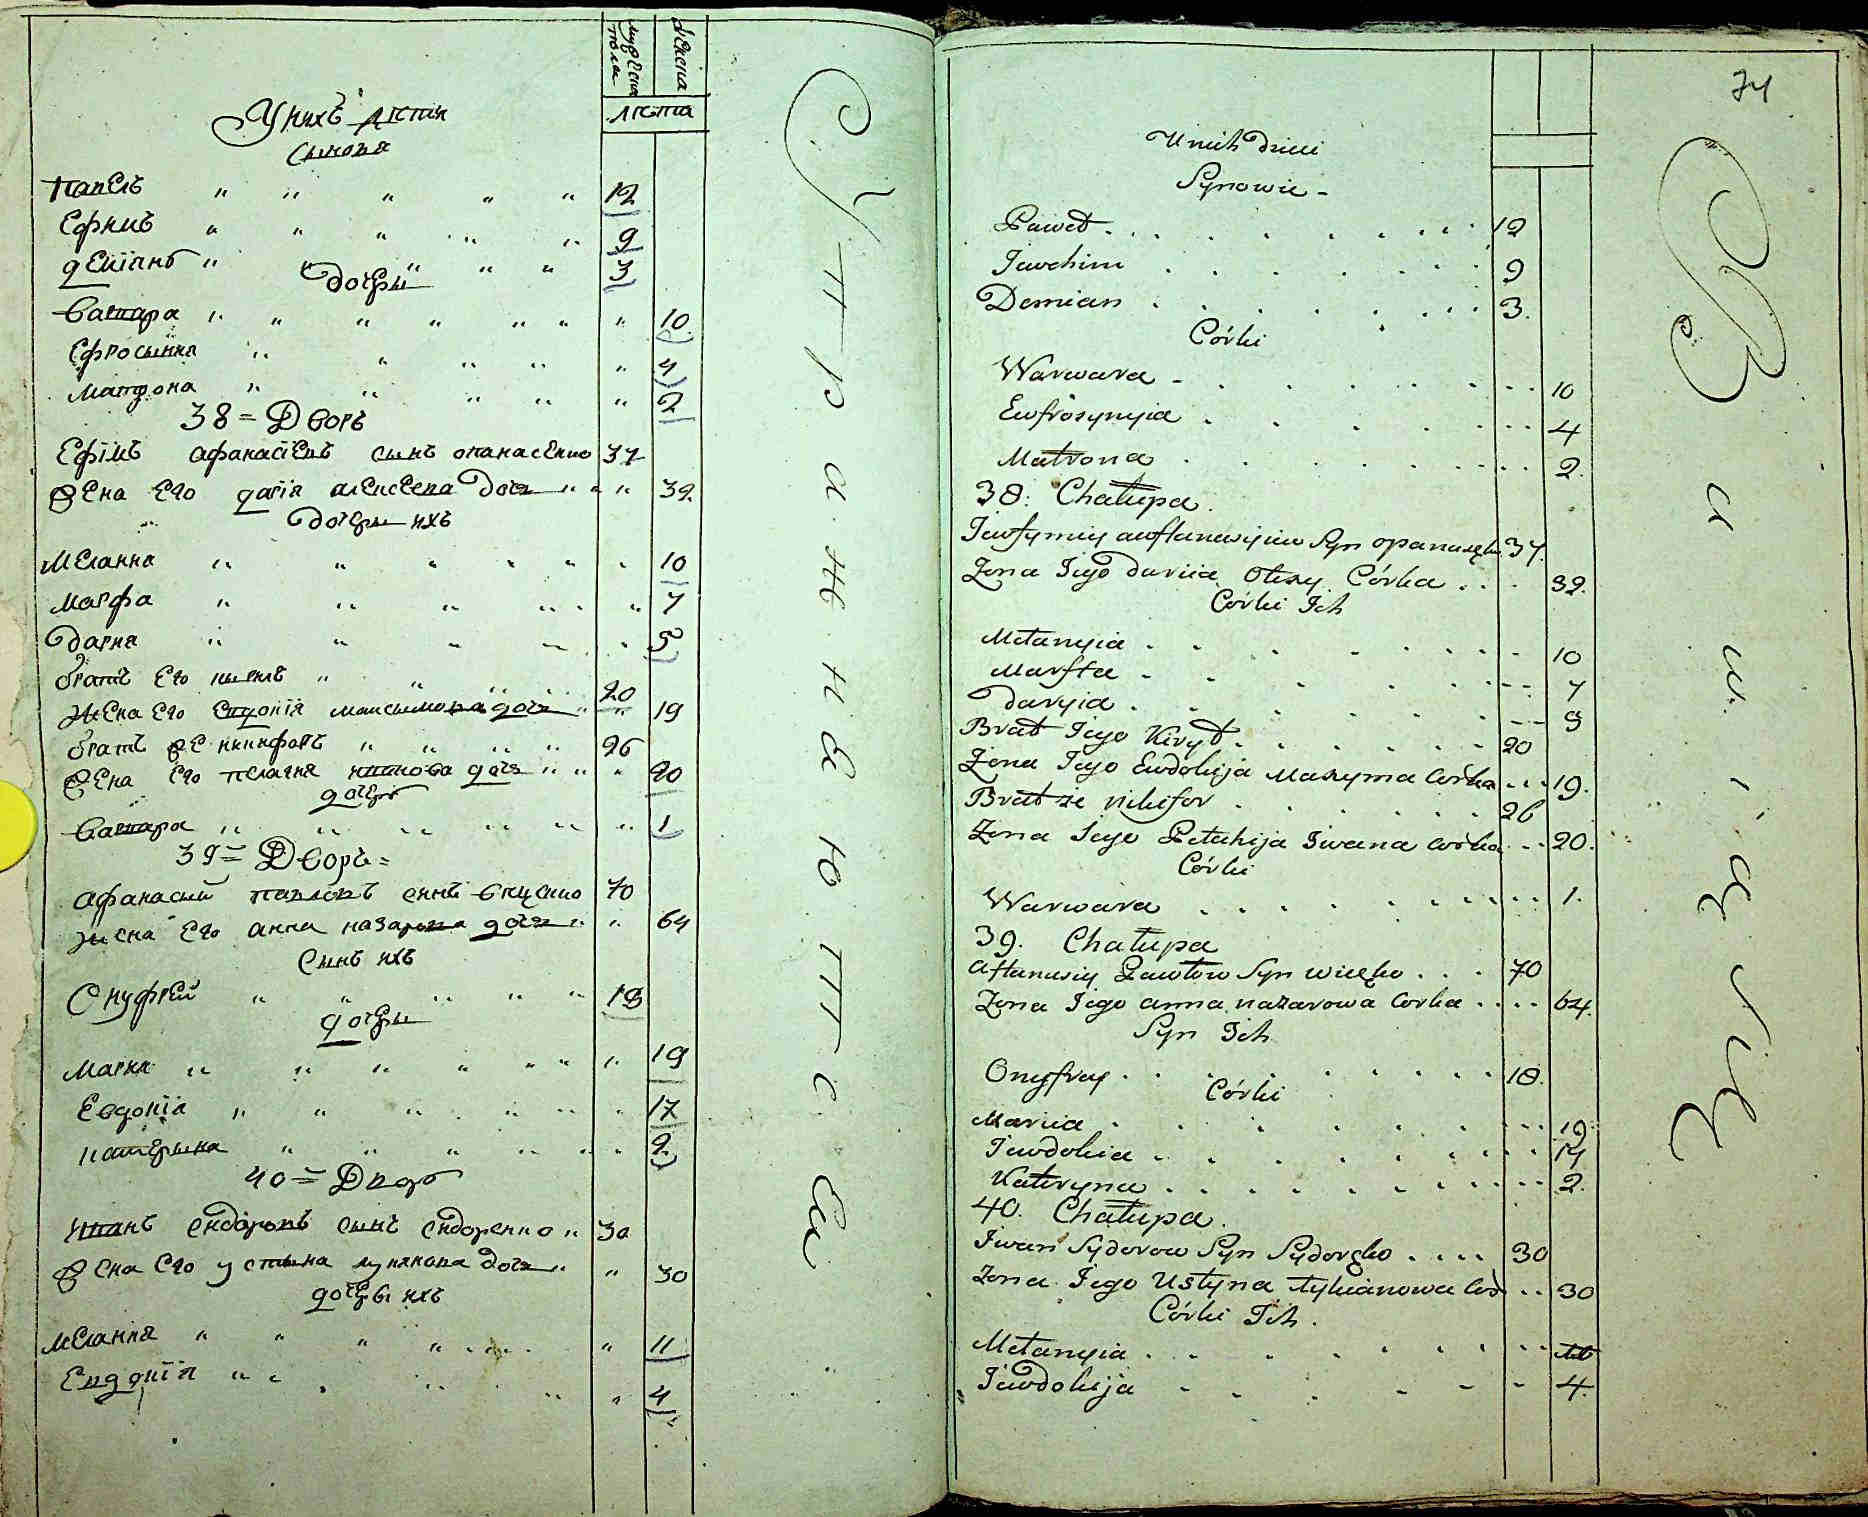 мужеска пола
женска
лѣта
У нихъ дѣти
сынова
Павелъ 12
Ефимъ 9
демїанъ 3
дочеры
Варвара 10
Ефросинка 4
матрона 2
38 = Дворъ
Ефїмъ афанасїевъ сынъ опанасенко 37
жена Его дарія алексеева дочь 32
дочеры ихъ
меланка 10
марфа 7
дарка 5
братъ Его кырилъ 20
жена Его евдокія максымова дочь 19
братъ же никифоръ 26
жена Его пелагия иванова дочь 20
дочеръ
варвара 1
39 = Дворъ =
афанасий павловъ сынъ 70
жена Его анна назарова дочь 64
Сынъ ихъ
Онуфрей 18
дочеры
Марья 19
Евдокіа 17
катерына 2
40 = Дворъ
иванъ сидоровъ сынъ сидоренко 30
жена Его устына лукянова дочь 30
дочеры ихъ
меланка 11
Евдокїя 4
С у п р а ж н е ю п с а
74
U nich dzieci
Synowie -
Paweł 12
Jewchim 9
Demian 3.
Córki
Warwara 10
Eufrosynyia 4
Matrona 2.
38. Chałupa.
Jewfymiy Syn 37.
Zona Jego dariia Olexy Córka 32.
Córki Ich
Mełanyia 10
Marfta 7
daryia 5
Brat Jego Kirył 20
Zona Jego Ewdokija Maxyma Corka 19.
Brat że nikifor 26
Zona Jego Pełahija Iwana corka 20.
Córki
Warwara 1.
39. Chałupa
Aftanasiy Pawłow Syn 70
Zona Jego anna nazarowa Corka 64.
Syn Ich
Onyfrey 18.
Córki
Mariia 19.
Jewdokia 17
Katryna 2.
40. Chałupa.
Iwan Sydorow Syn Sydoręko 30
Zona Jego Ustyna łukianowa Cor 30
Córki Ich.
Mełanyia
Jewdokija 4.